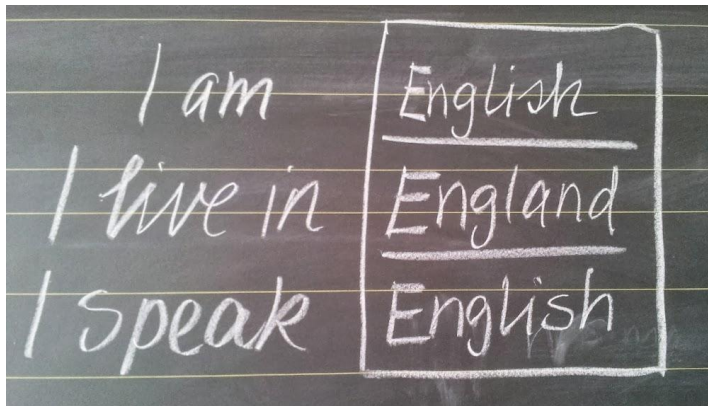 I am English
I live in England
I speak English